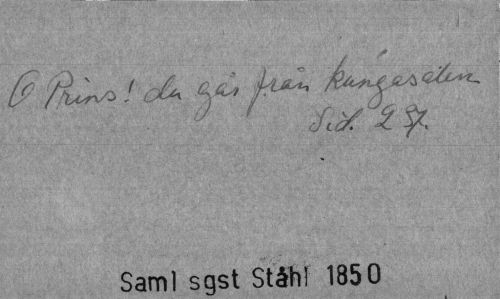 O Prins! du går från kungasalen
Sid. 257.
Saml sgst Ståhl 1850